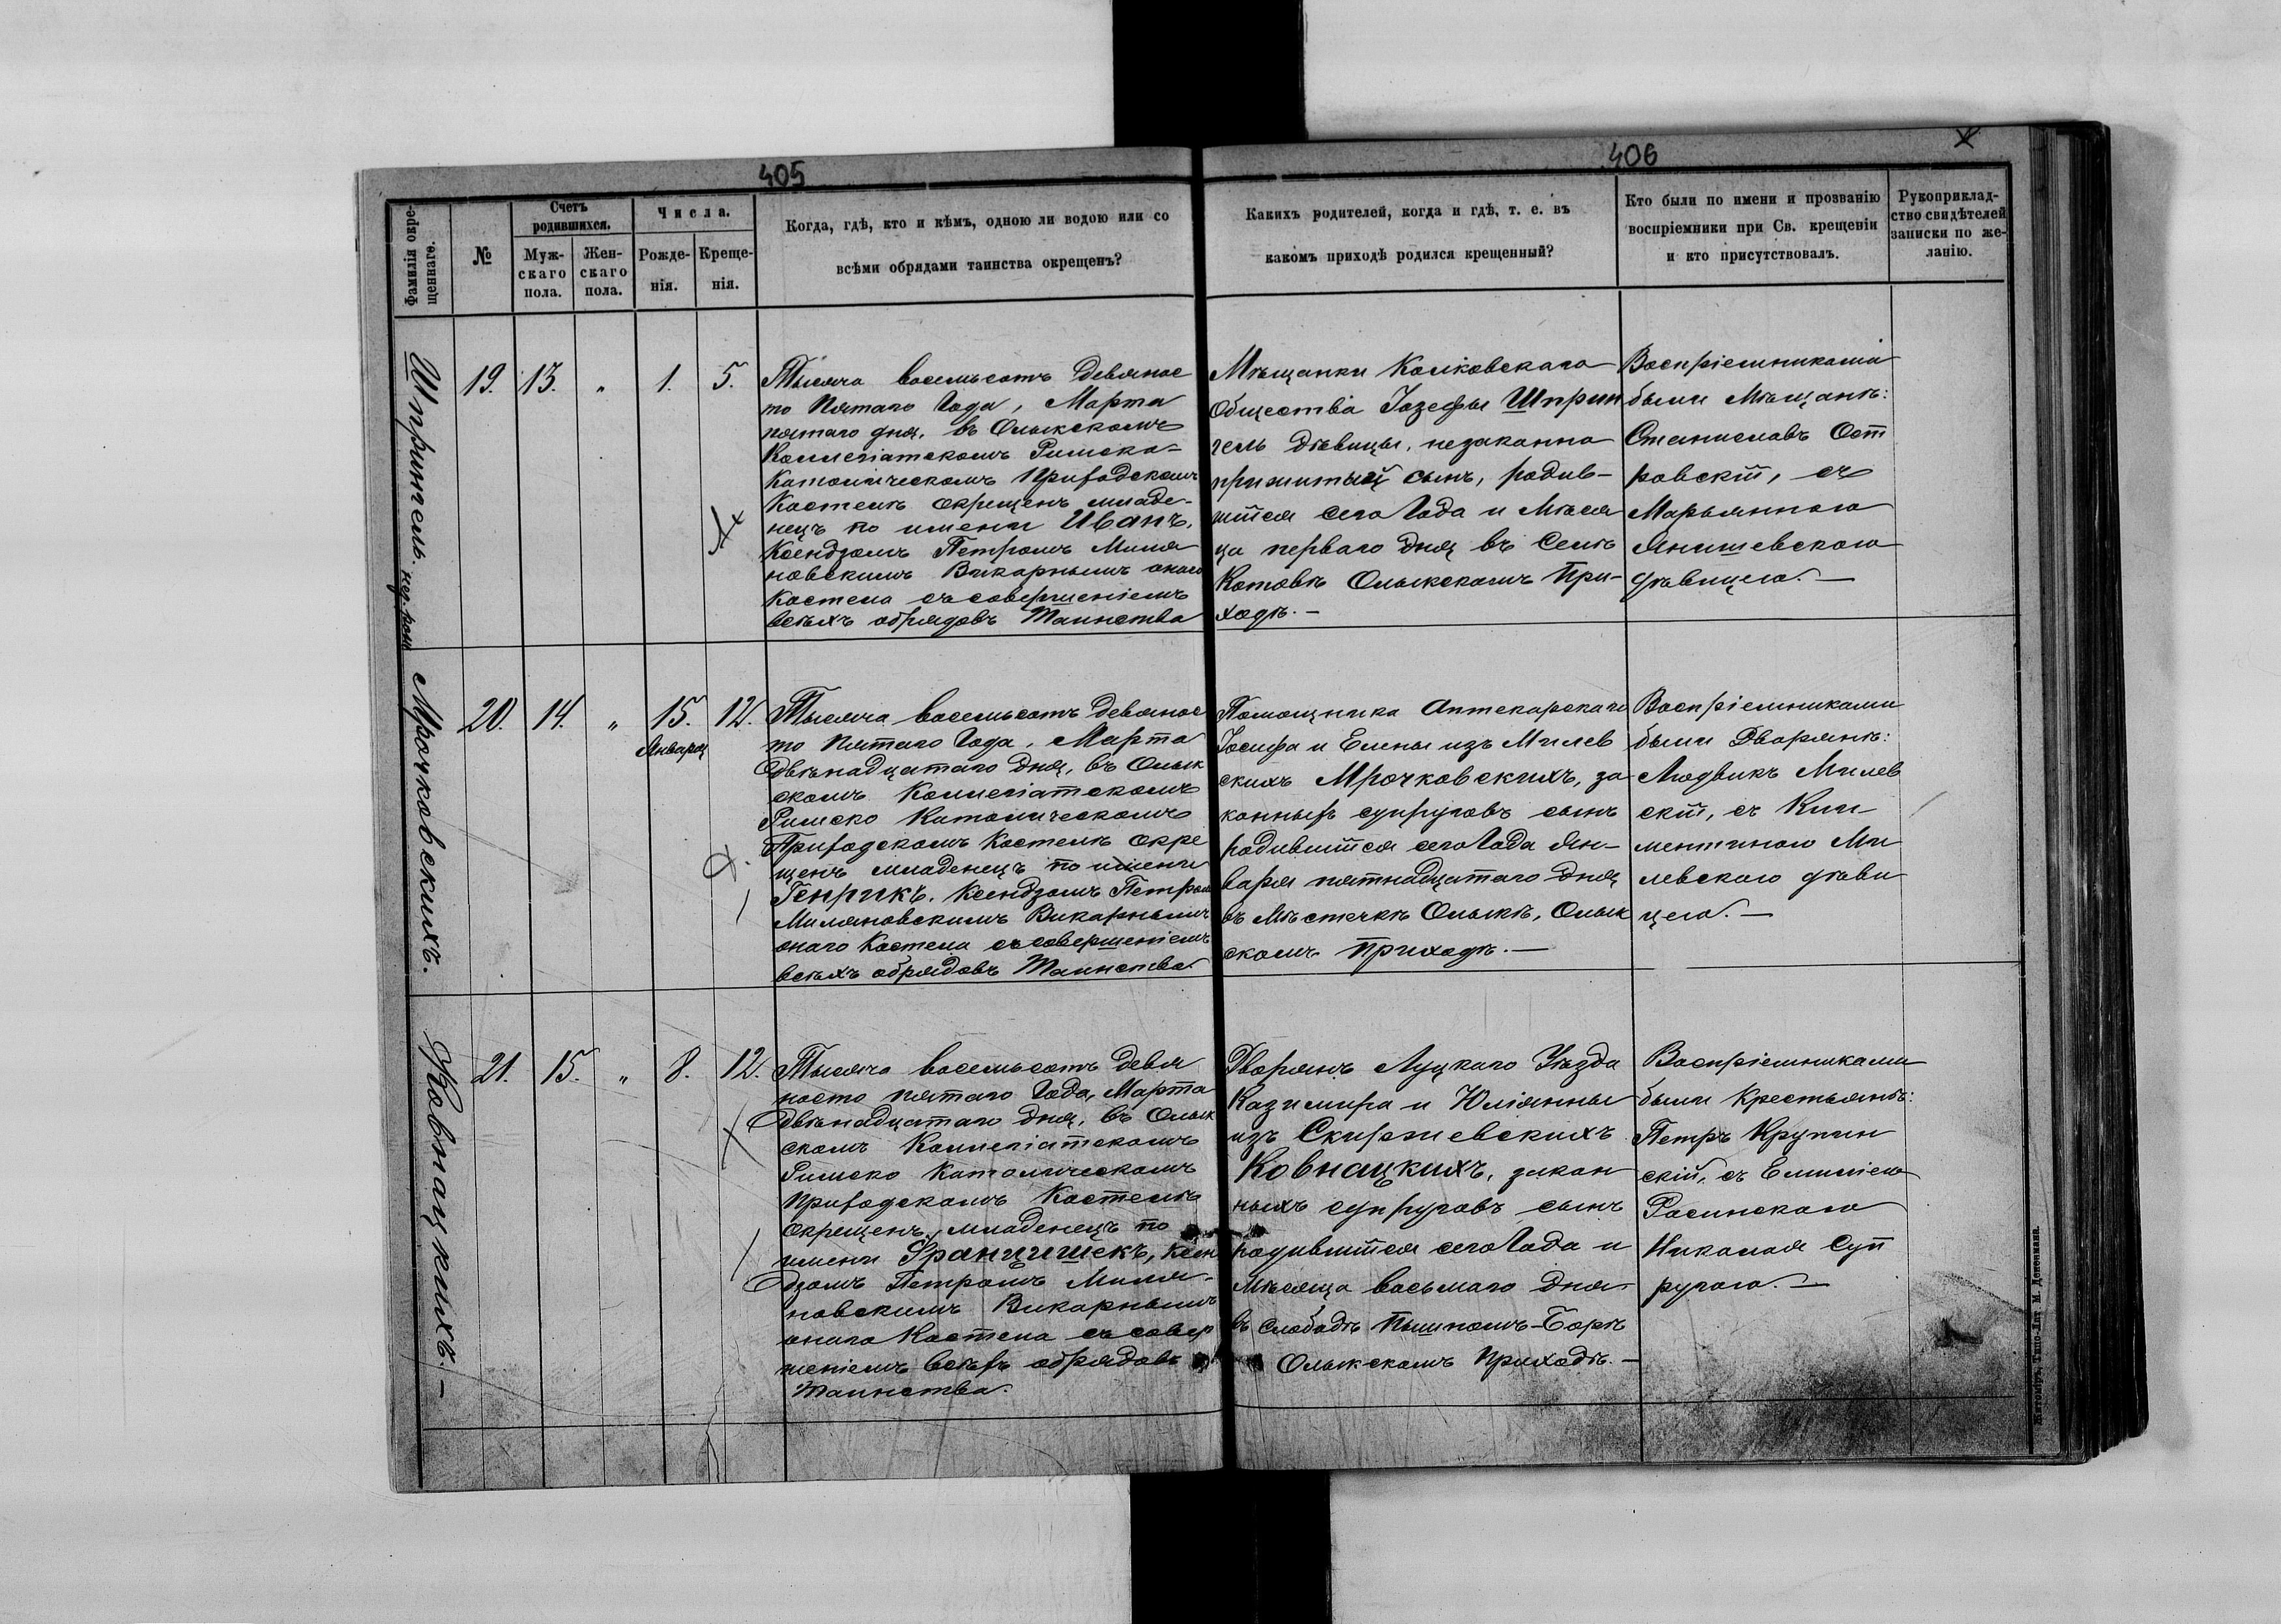 405
Фамилія окре-
щеннаго.
№
Счетъ
родившихся.
Муж-
скаго
пола.
Жен-
скаго
пола.
Числа.
Рожде-
нія.
Креще-
нія.
Когда, гдѣ, кто и кѣмъ, одною ли водою или со
всѣми обрядами таинства окрещенъ?
406
Какихъ родителей, когда и гдѣ, т. е. въ
какомъ приходѣ родился крещенный?
Кто были по имени и прозванію
воспріемники при Св. крещеніи
и кто присутствовалъ.
Рукоприклад-
ство свидѣтелей
записки по же-
ланію.
Шпрингель
19. 13. " 1. 5.
Тысяча восемьсотъ девянос
то пятаго Года, Марта
пятаго дня, въ Олыкскомъ
Коллегіатскомъ Римско-
Католическомъ Приходскомъ
Костелѣ окрещенъ младе-
нецъ по имени Иванъ,
Ксендзомъ Петромъ Миля
новскимъ Викарнымъ онаго
Костела съ совершеніемъ
всѣхъ обрядовъ Таинства
Мѣщанки Колковскаго
Общества Іозефы Шприн
гель дѣвицы, незаконно
прижитый сынъ, родив-
шійся сего Года и Мѣся
ца перваго дня въ Селѣ
Котовѣ Олыкскомъ При-
ходѣ.—
Воспріемниками
были Мѣщанѣ:
Станиславъ Ост
ровскій, съ
Марьянною
Янишевскою
дѣвицею.—
Мрочковскихъ.
20. 14. " 15. 12.
Января
Тысяча восемьсотъ девянос
то пятаго Года, Марта
двѣнадцатаго дня, въ Олык
скомъ Коллегіатскомъ
Римско Католическомъ
Приходскомъ Костелѣ окре
щенъ младенецъ по имени
Генрикъ, Ксендзомъ Петромъ
Миляновскимъ Викарнымъ
онаго Костела съ совершеніемъ
всѣхъ обрядовъ Таинства
Помощника Аптекарскаго
Іосифа и Елены изъ Милев
скихъ Мрочковскихъ, за
конныхъ супруговъ сынъ
родившійся сего Года Ян-
варя пятнадцатаго дня
въ Мѣстечкѣ Олыкѣ, Олык
скомъ Приходѣ.—
Воспріемниками
были Дворянѣ:
Людвикъ Милев
скій, съ Кли-
ментиною Ми
левскою дѣви
цею.—
Ковнацкихъ.—
21. 15. " 8. 12.
Тысяча восемьсотъ девя
носто пятаго Года, Марта
двѣнадцатаго дня, въ Олык
скомъ Коллегіатскомъ
Римско Католическомъ
Приходскомъ Костелѣ
окрещенъ младенецъ по
имени Францишекъ, Ксен
дзомъ Петромъ Миля-
новскимъ Викарнымъ
онаго Костела съ совер
шеніемъ всѣхъ обрядовъ
Таинства.
Дворянъ Луцкаго Уѣзда
Казимира и Юліанны
изъ Скиржевскихъ
Ковнацкихъ, закон
ныхъ супруговъ сынъ
родившійся сего Года и
Мѣсяца восьмаго дня
въ слободѣ Пышномъ-Борѣ
Олыкскомъ Приходѣ.—
Воспріемниками
были Крестьянѣ:
Петръ Крупин
скій, съ Емиліею
Росинскою
Николая Суп
ругою.—
Житоміръ, Типо-Лит. М. Дененмана.